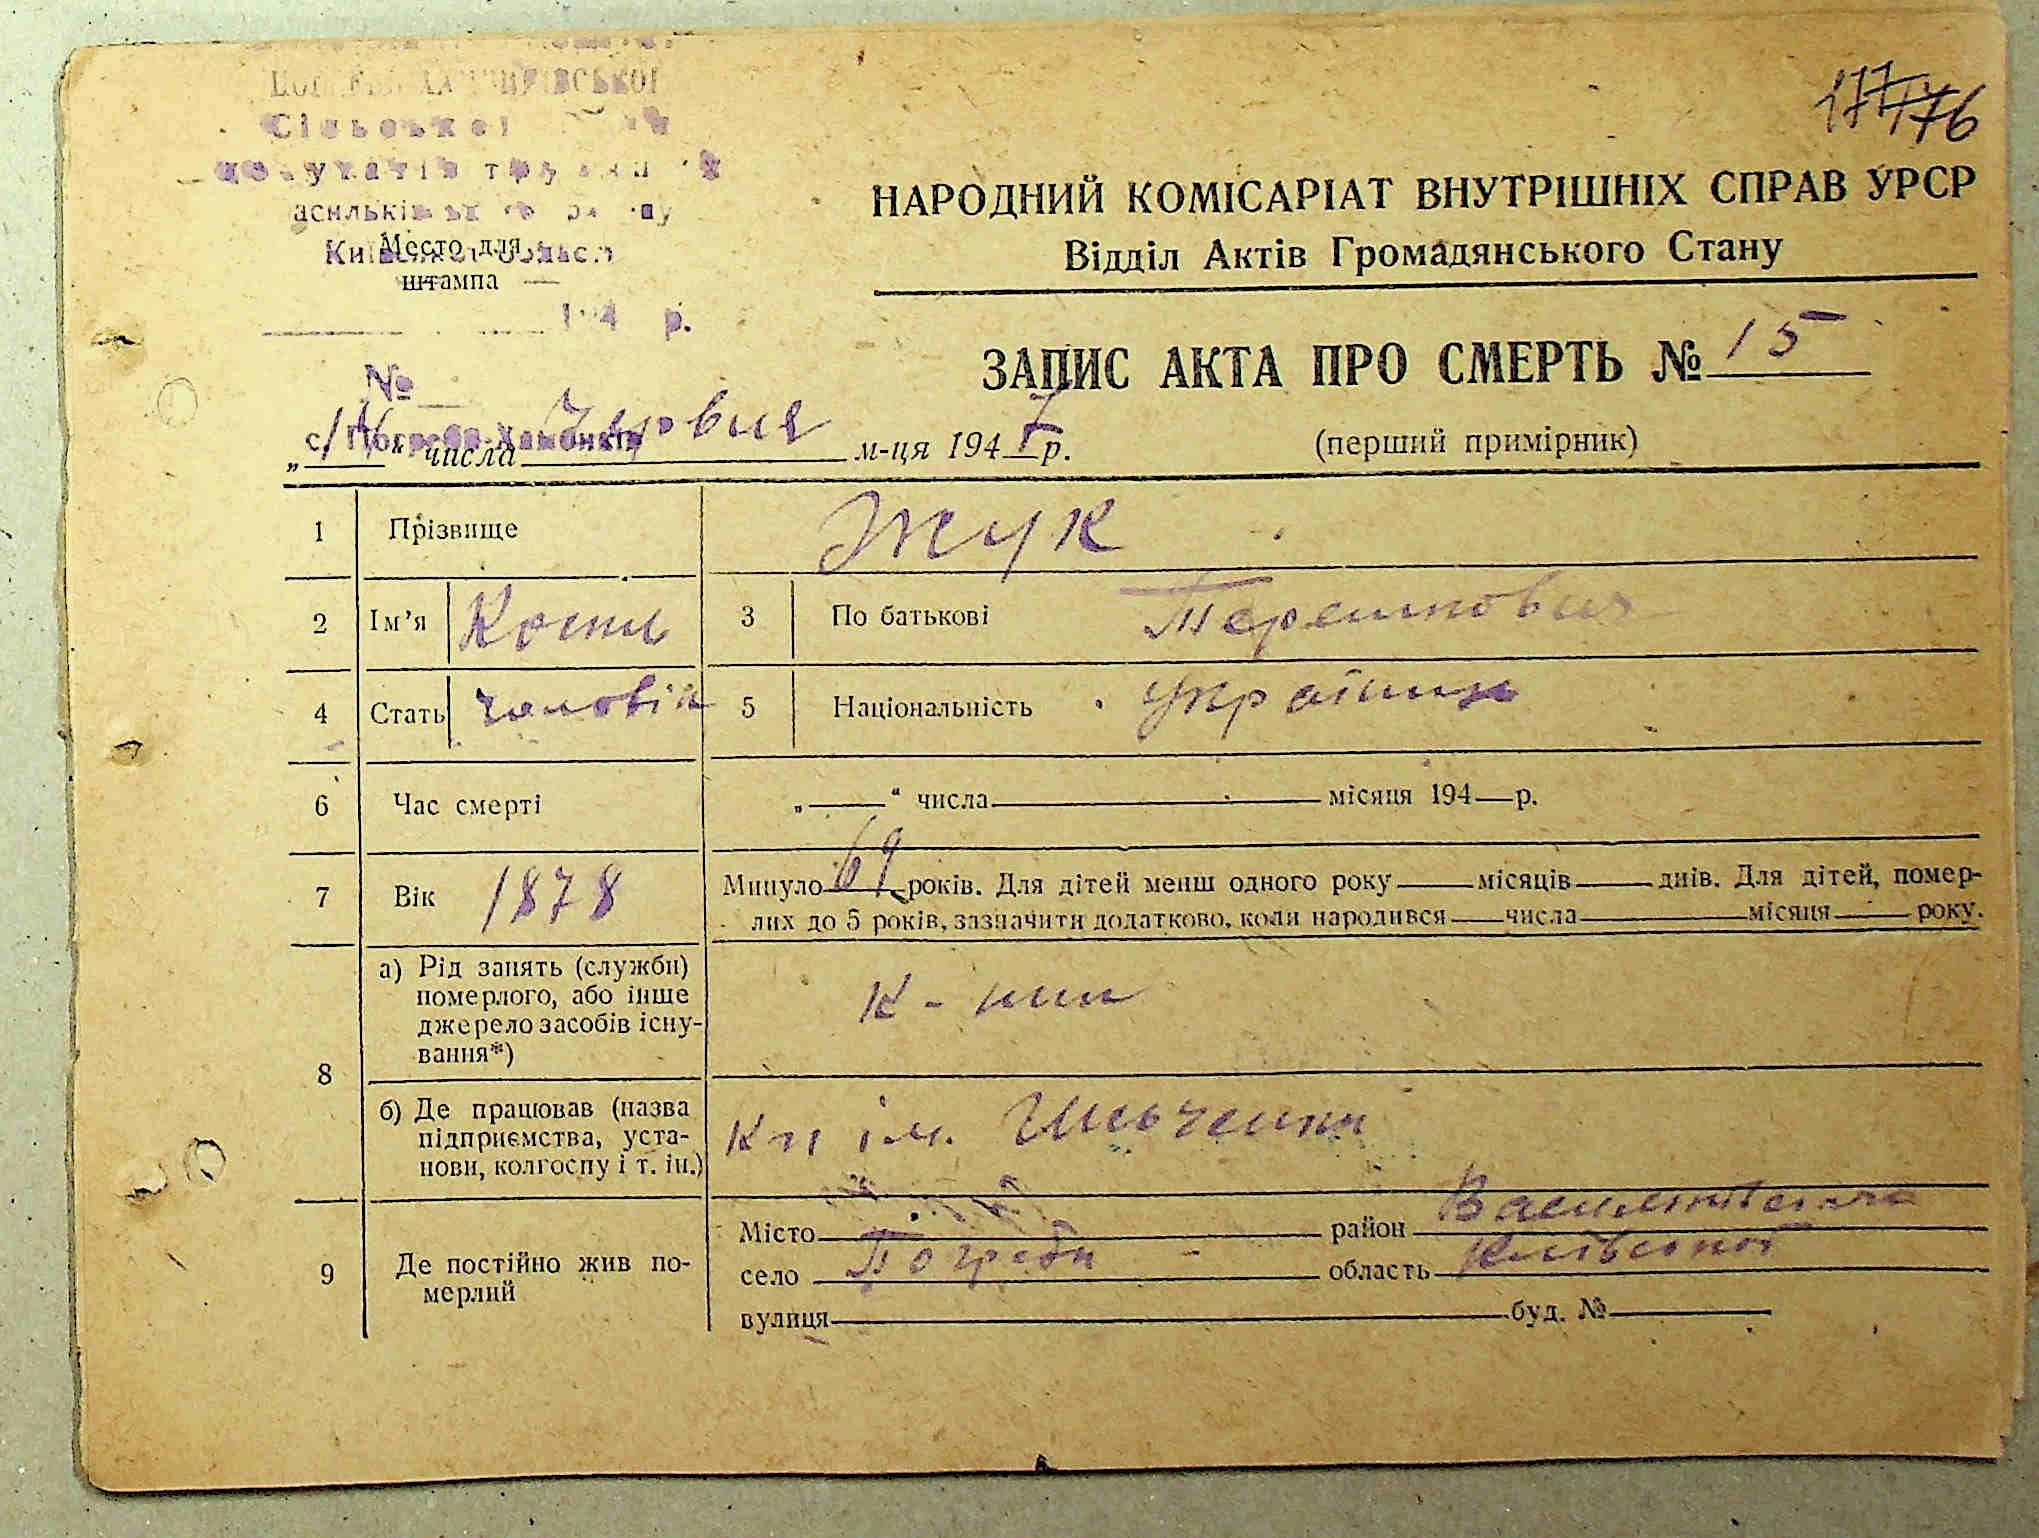 177 176
Сільської
асильківськ
Місто для
штампа
194 р.
№
НАРОДНИЙ КОМІСАРІАТ ВНУТРІШНІХ СПРАВ УРСР
Відділ Актів Громадянського Стану
ЗАПИС АКТА ПРО СМЕРТЬ № 15
„14“ числа Червня м-ця 1947 р.
(перший примірник)
1 Прізвище Жук
2 Ім’я Кость 3 По батькові Терешкович
4 Стать чоловік 5 Національність українн
6 Час смерті „ “ числа місяця 194 р.
7 Вік 1878 Минуло 69 років. Для дітей менш одного року місяців днів. Для дітей, помер-
лих до 5 років, зазначити додатково, коли народився числа місяця року.
8 а) Рід занять (служби)
померлого, або інше
джерело засобів існу-
вання*)
к-ник
б) Де працював (назва
підприємства, уста-
нови, колгоспу і т. ін.)
кп ім. Ильченка
9 Де постійно жив по-
мерлий
Місто район Васильківського
село Погреби область Київської
вулиця буд. №